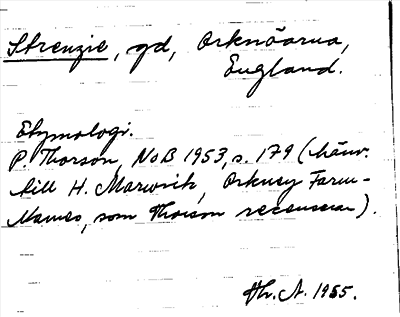 Strenzie, gd, Orknöarna,
England.
Etymologi.
P. Thorson, NoB 1953, s. 179 (hänv.
till H. Marwick, Orkney Farm-
Names, som Thorson recenserar).
Hr. A. 1955.